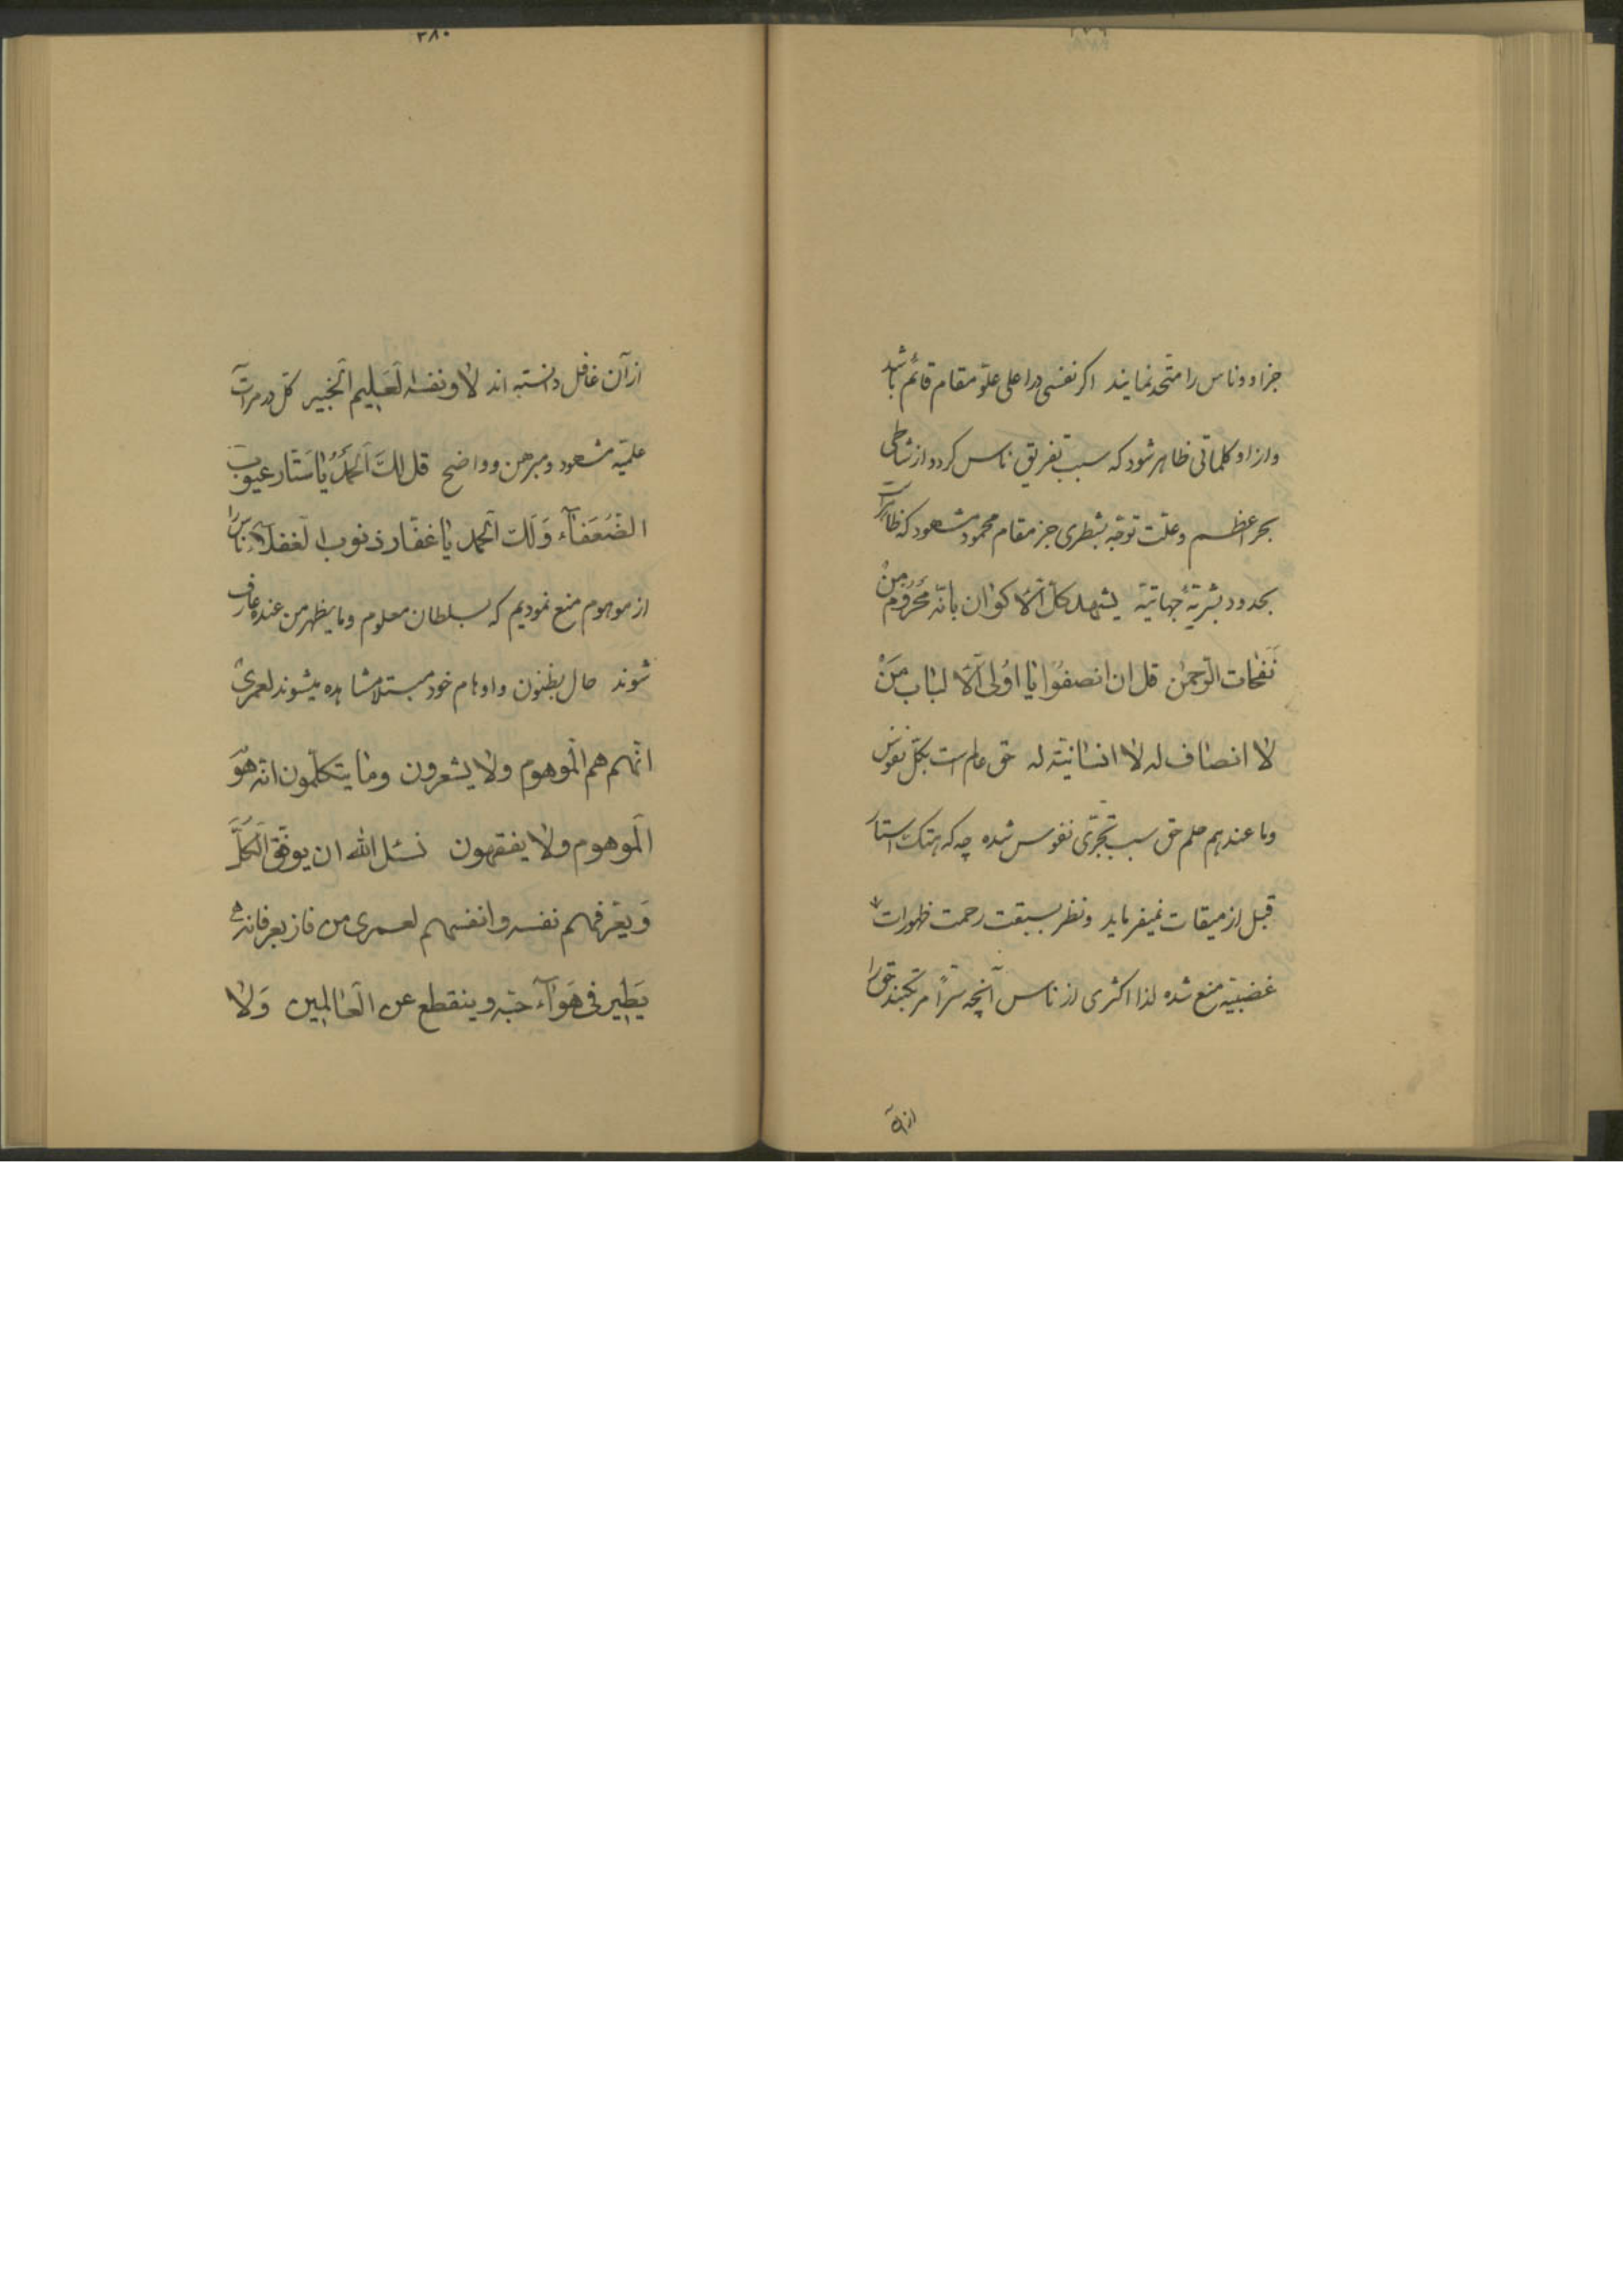 جز او و ناس را متحد نمایند اکر نفسی در اعلی علوّ مقام قائم باشد
و از او کلماتی ظاهر شود که سبب تفریق ناس کردد و از شاطی
بحر اعظم و علّت توجّه بشطری جز مقام محمود مشهود که ظاهر است
بحدود بشریّهٔ جهاتیّه یشهد کلّ الاکوان بانّه محروم من
نفحات الرّحمن قل ان انصفوا یا اولی الالباب من
لا انصاف له لا انسانیّة له حق عالم است بکلّ نفوس
و ما عندهم حلم حق سبب تجرّی نفوس شده چه که هتک استار
قبل از میقات نمیفرماید و نظر بسبقت رحمت ظهورات
غضبیّه منع شده لذا اکثری از ناس آنچه سرّاً مرتکبند حق را
از آن
٣٨٠
از آن غافل دانسته اند لا و نفسه العلیم الخبیر کلّ در مرآت
علمیّه مشهود و مبرهن و واضح قل لک الحمد یا ستّار عیوب
الضّعفآء و لک الحمد یا غفّار ذنوب الغفلآء ناس را
از موهوم منع نمودیم که بسلطان معلوم و ما یظهر من عنده عارف
شوند حال بظنون و اوهام خود مبتلا مشاهده میشوند لعمری
انّهم هم الموهوم و لا یشعرون و ما یتکلّمون انّه هو
الموهوم و لا یفقهون نسئل الله ان یوفّق الکلّ
و یعرّفهم نفسه و انفسهم لعمری من فاز بعرفانه
یطیر فی هوآء حبّه و ینقطع عن العالمین و لا